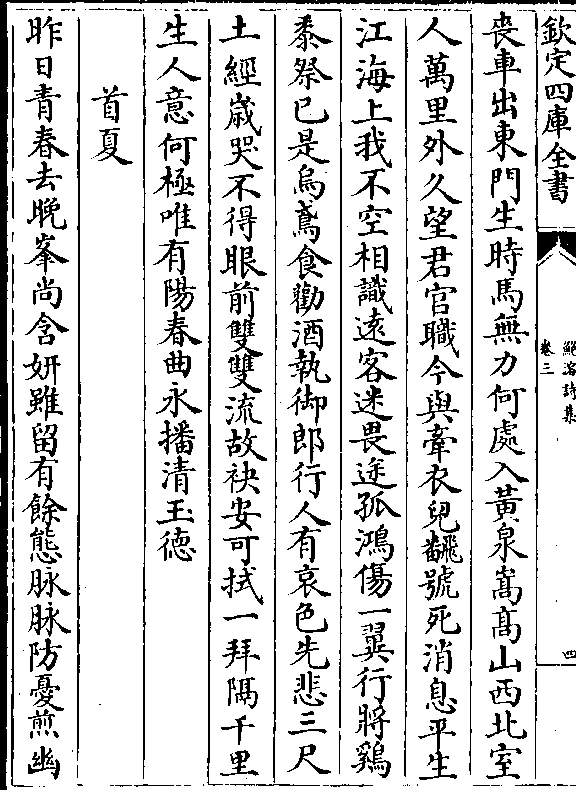 欽定四庫全書
鮑溶詩集
卷三
四
喪車出東門生時馬無力何處入黃泉嵩髙山西北室
人萬里外久望君官職今與牽衣兒飜號死消息平生
江海上我不空相識遠客迷畏途孤鴻傷一翼行將鷄
黍祭已是烏鳶食勸酒執御郎行人有哀色先悲三尺
土經歳哭不得眼前雙雙流故袂安可拭一拜隔千里
生人意何極唯有陽春曲永播清玉德
首夏
昨日青春去晩峯尚含妍雖留有餘態脉脉防憂煎幽